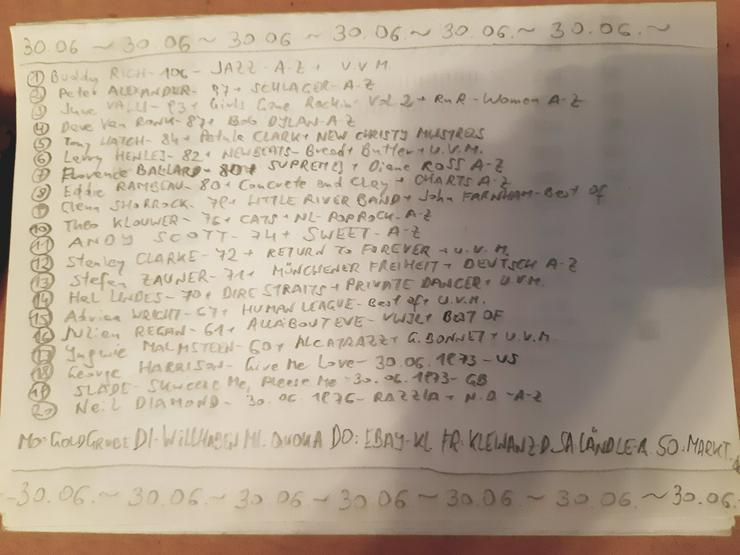 30.06 ~ 30.06 ~ 30.06 ~ 30.06 ~ 30.06 ~ 30.06. ~
① Buddy RICH - 106 - JAZZ - A-Z + U.V.M.
② Peter ALEXANDER - 97 + SCHLAGER - A-Z
③ June VALLI - 93 + Girls Gone Rockin' Vol 2 + RnR - Women A-Z
④ Dave Van RONK - 87 + Bob DYLAN - A-Z
⑤ Tony HATCH - 84 + Petula CLARK + NEW CHRISTY MINSTRELS
⑥ Larry HENLEY - 82 + NEWBEATS - Bread + Butter + U.V.M.
⑦ Florence BALLARD - 80 + SUPREMES + Diana ROSS A-Z
⑧ Eddie RAMBEAU - 80 + Concrete and Clay + CHARTS A-Z
⑨ Glenn SHORROCK - 79 + LITTLE RIVER BAND + John FARNHAM - Best of
⑩ Theo KLOUWER - 76 + CATS + NL - POPROCK - A-Z
⑪ ANDY SCOTT - 74 + SWEET - A-Z
⑫ Stanley CLARKE - 72 + RETURN TO FOREVER + U.V.M.
⑬ Stefan ZAUNER - 71 + MÜNCHENER FREIHEIT + DEUTSCH A-Z
⑭ Hal LINDES - 70 + DIRE STRAITS + PRIVATE DANCER + U.V.M.
⑮ Adrian WRIGHT - 67 + HUMAN LEAGUE - Best of + U.V.M.
⑯ Julien REGAN - 61 + ALL ABOUT EVE - + BEST OF
⑰ Yngwie MALMSTEEN - 60 + ALCATRAZZ + G. BONNET + U.V.M.
⑱ George HARRISON - Give Me Love - 30.06.1973 - US
⑲ SLADE - SKWEEZE Me, PLeeze Me - 30.06.1973 - GB
⑳ Neil DIAMOND - 30.06.1976 - RAZZIA + N.D. - A-Z
MO: GOLDGRUBE DI - WILLHABEN MI. QUOKA DO: EBAY-KL FR. KLEINANZ-D. SA LÄNDLE-A. SO. MARKT.
-30.06. ~ 30.06. ~ 30.06. ~ 30.06 ~ 30.06. ~ 30.06. ~ 30.06.-